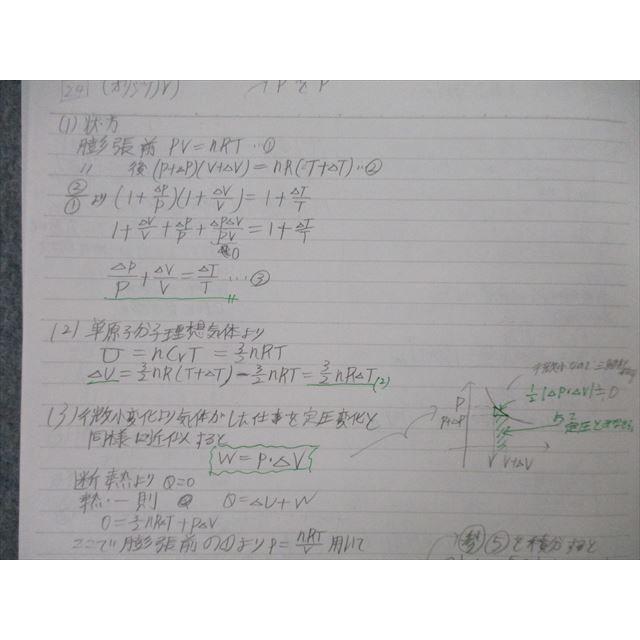 24 (オリジナル)
(1) 状方
膨張前 PV=nRT …①
〃 後 (P+ΔP)(V+ΔV)=nR(T+ΔT)…②
②/① より (1+ΔP/P)(1+ΔV/V)=1+ΔT/T
1+ΔV/V+ΔP/P+ΔPΔV/PV=1+ΔT/T
≒0
ΔP/P+ΔV/V=ΔT/T …③
(2) 単原子分子理想気体より
U=nCvT=3/2nRT
ΔU=3/2nR(T+ΔT)-3/2nRT=3/2nRΔT (2)
(3) 微小変化より気体がした仕事を定圧変化と
同様に近似すると
W=P・ΔV
断熱より Q=0
熱・一則 Q Q=ΔU+W
0=3/2nRΔT+PΔV
ここで膨張前の①より P=nRT/V 用いて
微小なので三角形
1/2|ΔP・ΔV|≒0
P
P+ΔP
V V+ΔV
定圧と
⑤を積分すると